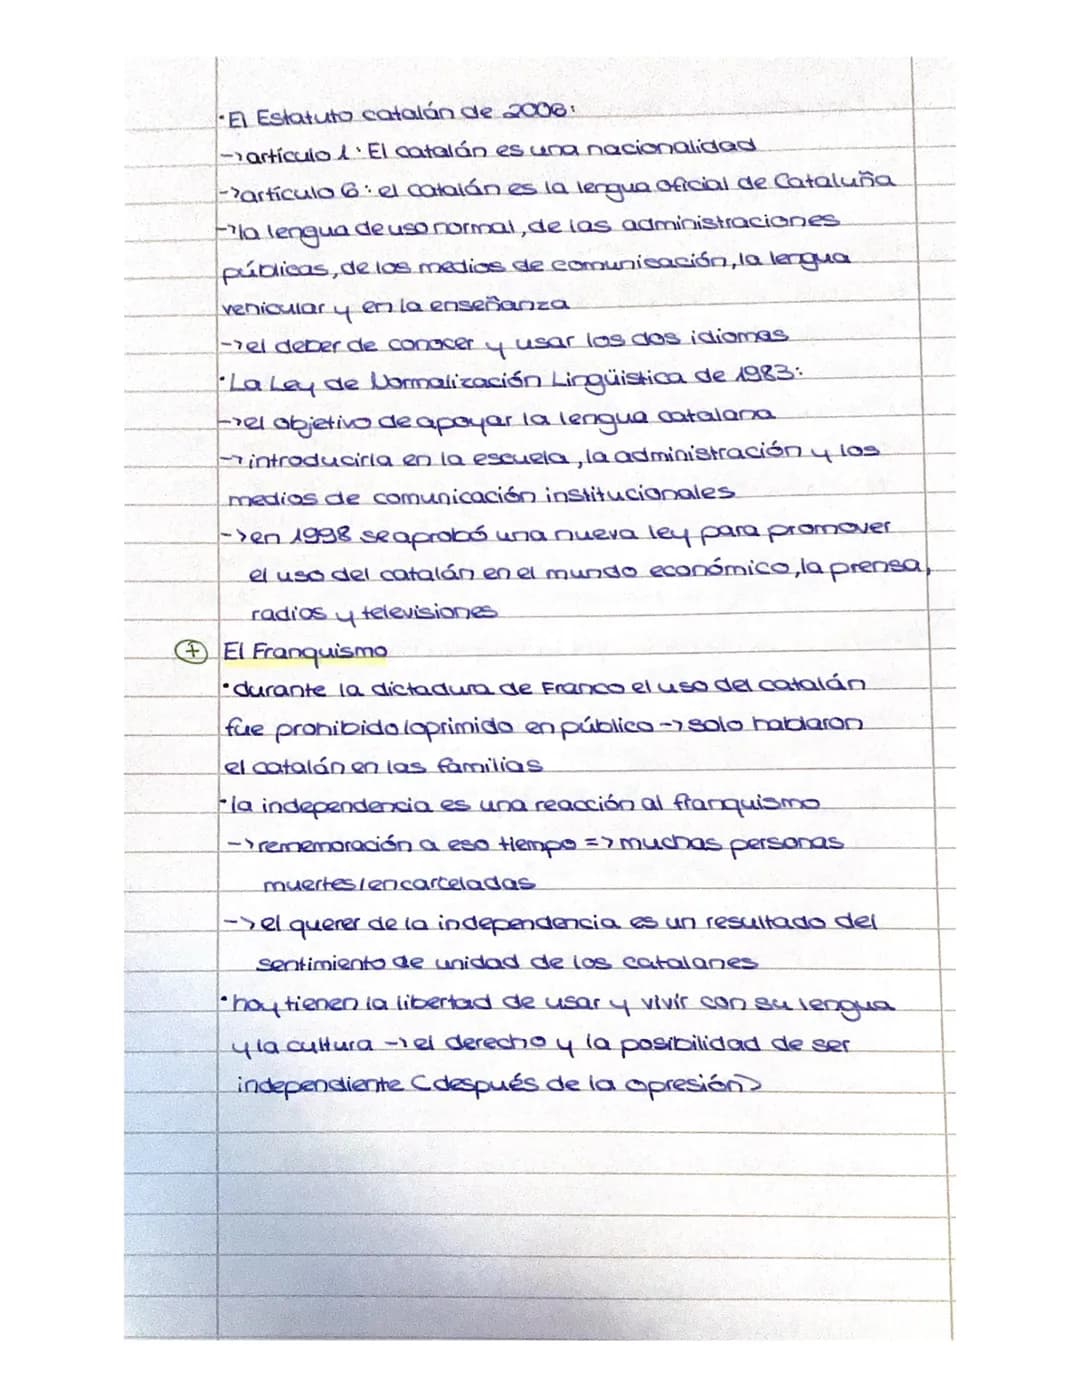 ·El Estatuto catalán de 2006:
->artículo 1: El catalán es una nacionalidad
->artículo 6: el catalán es la lengua oficial de Cataluña
->la lengua de uso normal, de las administraciones
públicas, de los medios de comunicación, la lengua
vehicular y en la enseñanza
->el deber de conocer y usar los dos idiomas
·La Ley de Normalización Lingüistica de 1983:
->el objetivo de apoyar la lengua catalana
->introducirla en la escuela, la administración y los
medios de comunicación institucionales
->en 1998 se aprobó una nueva ley para promover
el uso del catalán en el mundo económico, la prensa,
radios y televisiones
+ El Franquismo
·durante la dictadura de Franco el uso del catalán
fue prohibido/oprimido en público -> solo hablaron
el catalán en las familias
·la independencia es una reacción al franquismo
->rememoración a eso tiempo => muchas personas
muertes/encarceladas
->el querer de la independencia es un resultado del
sentimiento de unidad de los catalanes
·hoy tienen la libertad de usar y vivir con su lengua
y la cultura -> el derecho y la posibilidad de ser
independiente (después de la opresión)